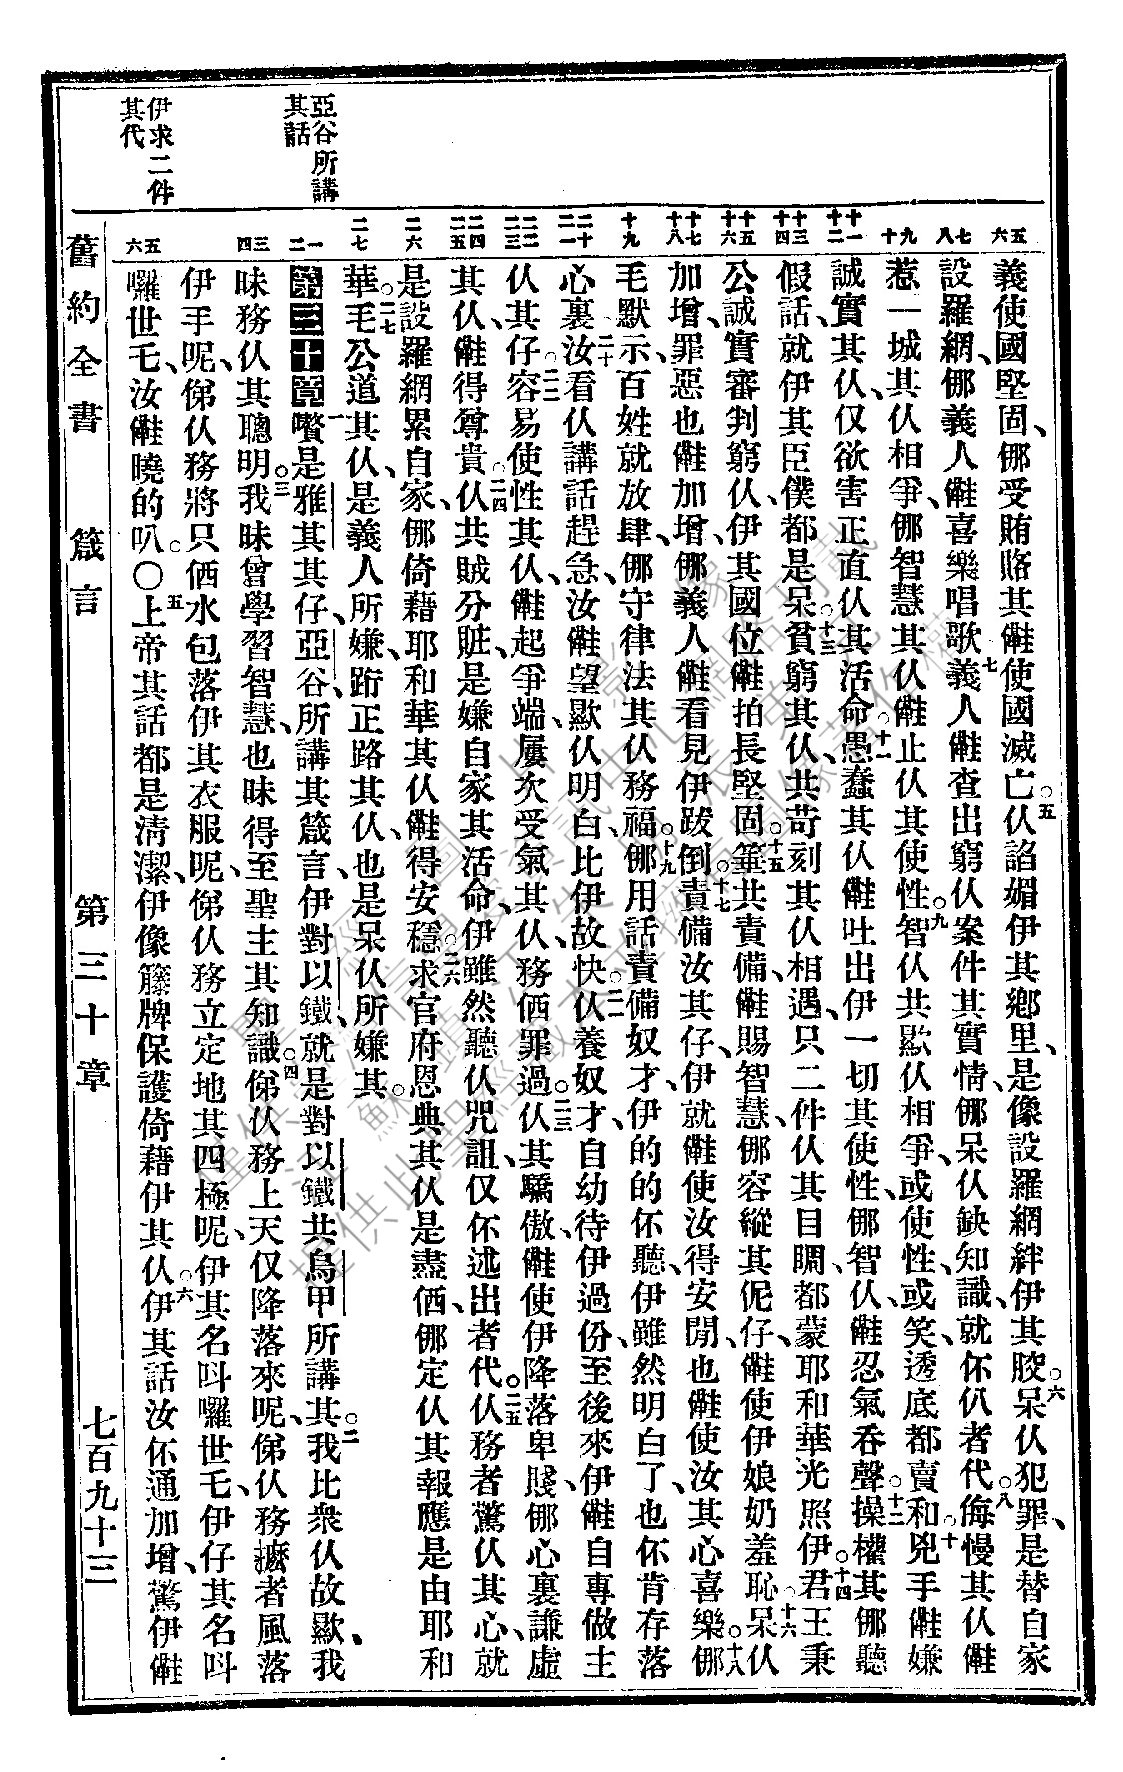 亞谷所講
其話
伊求二件
其代
義使國堅固、㑚受賄賂其𠆧使國滅亡。五仈諂媚伊其鄉里、是像設羅網絆伊其骹。六呆仈犯罪、是替自家
設羅網、㑚義人𠆧喜樂唱歌。七義人𠆧查出窮仈案件其實情、㑚呆仈缺知識、就伓仈者代。八侮慢其仈𠆧
惹一城其仈相爭、㑚智慧其仈𠆧止仈其使性。九智仈共歇仈相爭、或使性、或笑、透底都賣和。十兇手𠆧嫌
誠實其仈、仅欲害正直仈其活命。十一愚蠢其仈𠆧吐出伊一切其使性、㑚智仈𠆧忍氣吞聲。十二操權其㑚聽
假話、就伊其臣僕都是呆。十三貧窮其仈、共苛刻其仈相遇、只二件仈其目瞯、都蒙耶和華光照。十四伊君王秉
公誠實審判窮仈、伊其國位𠆧拍長堅固。十五箠共責備、𠆧賜智慧、㑚容縱其伲仔、𠆧使伊娘奶羞恥。十六呆仈
加增、罪惡也𠆧加增、㑚義人𠆧看見伊跋倒。十七責備汝其仔、伊就𠆧使汝得安閒、也𠆧使汝其心喜樂。十八㑚
毛默示、百姓就放肆、㑚守律法其仈務福。十九㑚用話責備奴才、伊的的伓聽、伊雖然明白了、也伓肯存落
心裏。二十汝看仈講話趕急、汝𠆧望歇仈明白、比伊故快。二一仈養奴才、自幼待伊過份、至後來、伊𠆧自專做主
仈其仔。二二容易使性其仈、𠆧起爭端、屢次受氣其仈、務𠲥罪過。二三仈其驕傲、𠆧使伊降落卑賤、㑚心裏謙虛
其仈、𠆧得尊貴。二四仈共賊分贓、是嫌自家其活命、伊雖然聽仈咒詛、仅伓述出者代。二五仈務者驚仈其心、就
是設羅網累自家、㑚倚藉耶和華其仈、𠆧得安穩。二六求官府恩典其仈是盡𠲥、㑚定仈其報應、是由耶和
華。二七毛公道其仈、是義人所嫌、跻正路其仈、也是呆仈所嫌其。
第三十章一䝼是雅其其仔、亞谷、所講其箴言、伊對以鐵、就是對以鐵共烏甲所講其。二我比衆仈故歇、我
昧務仈其聰明。三我昧曾學習智慧、也昧得至聖主其知識。四俤仈務上天仅降落來呢、俤仈務摭者風落
伊手呢、俤仈務將只𠲥水包落伊其衣服呢、俤仈務立定地其四極呢、伊其名呌囉世毛、伊仔其名呌
囉世毛、汝𠆧曉的叭。〇五上帝其話都是清潔、伊像籐牌保護倚藉伊其仈。六伊其話汝伓通加增、驚伊𠆧
五 六
七 八
九 十
十一 十二
十三 十四
十五 十六
十七 十八
十九
二十 二一
二二 二三
二四 二五
二六
二七
一 二
三 四
五 六
舊約全書 箴言 第三十章 七百九十三